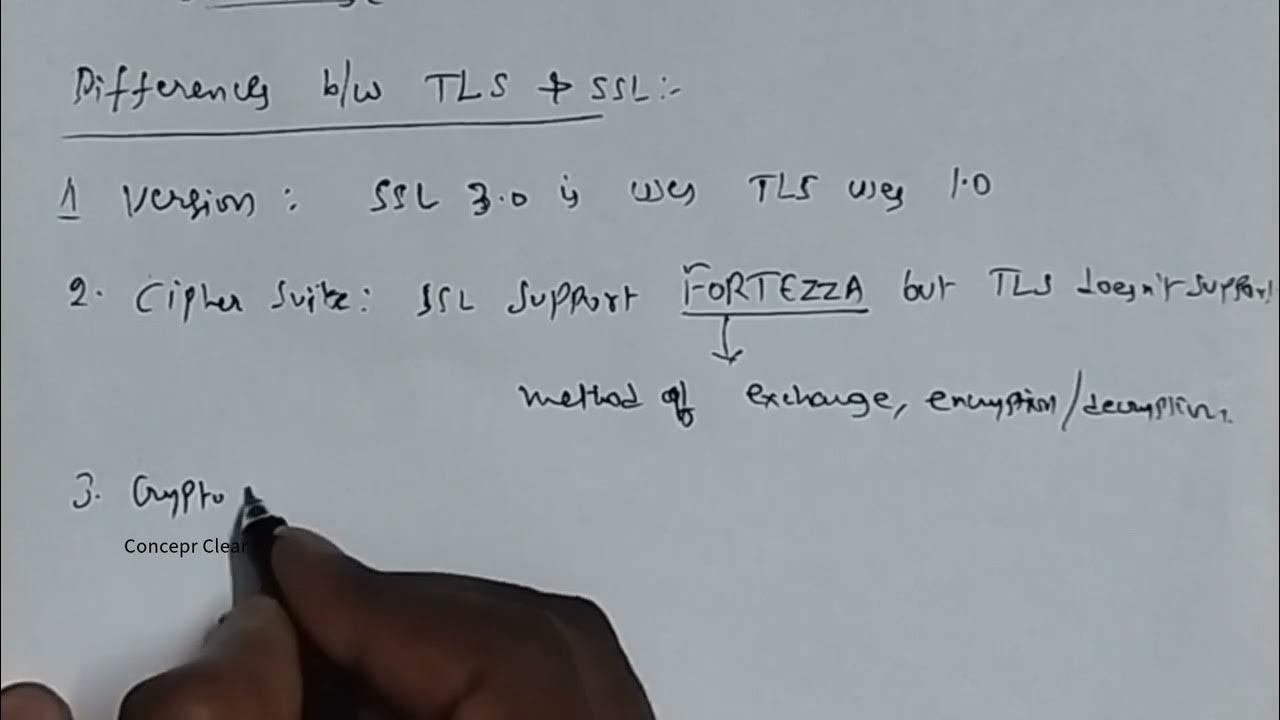 Differences b/w TLS & SSL:-
1 Version: SSL 3.0 is uses TLS uses 1.0
2. Cipher Suite: SSL support FORTEZZA but TLS doesn't support
method of exchange, encryption/decryption.
3. Crypto
Concepr Clear